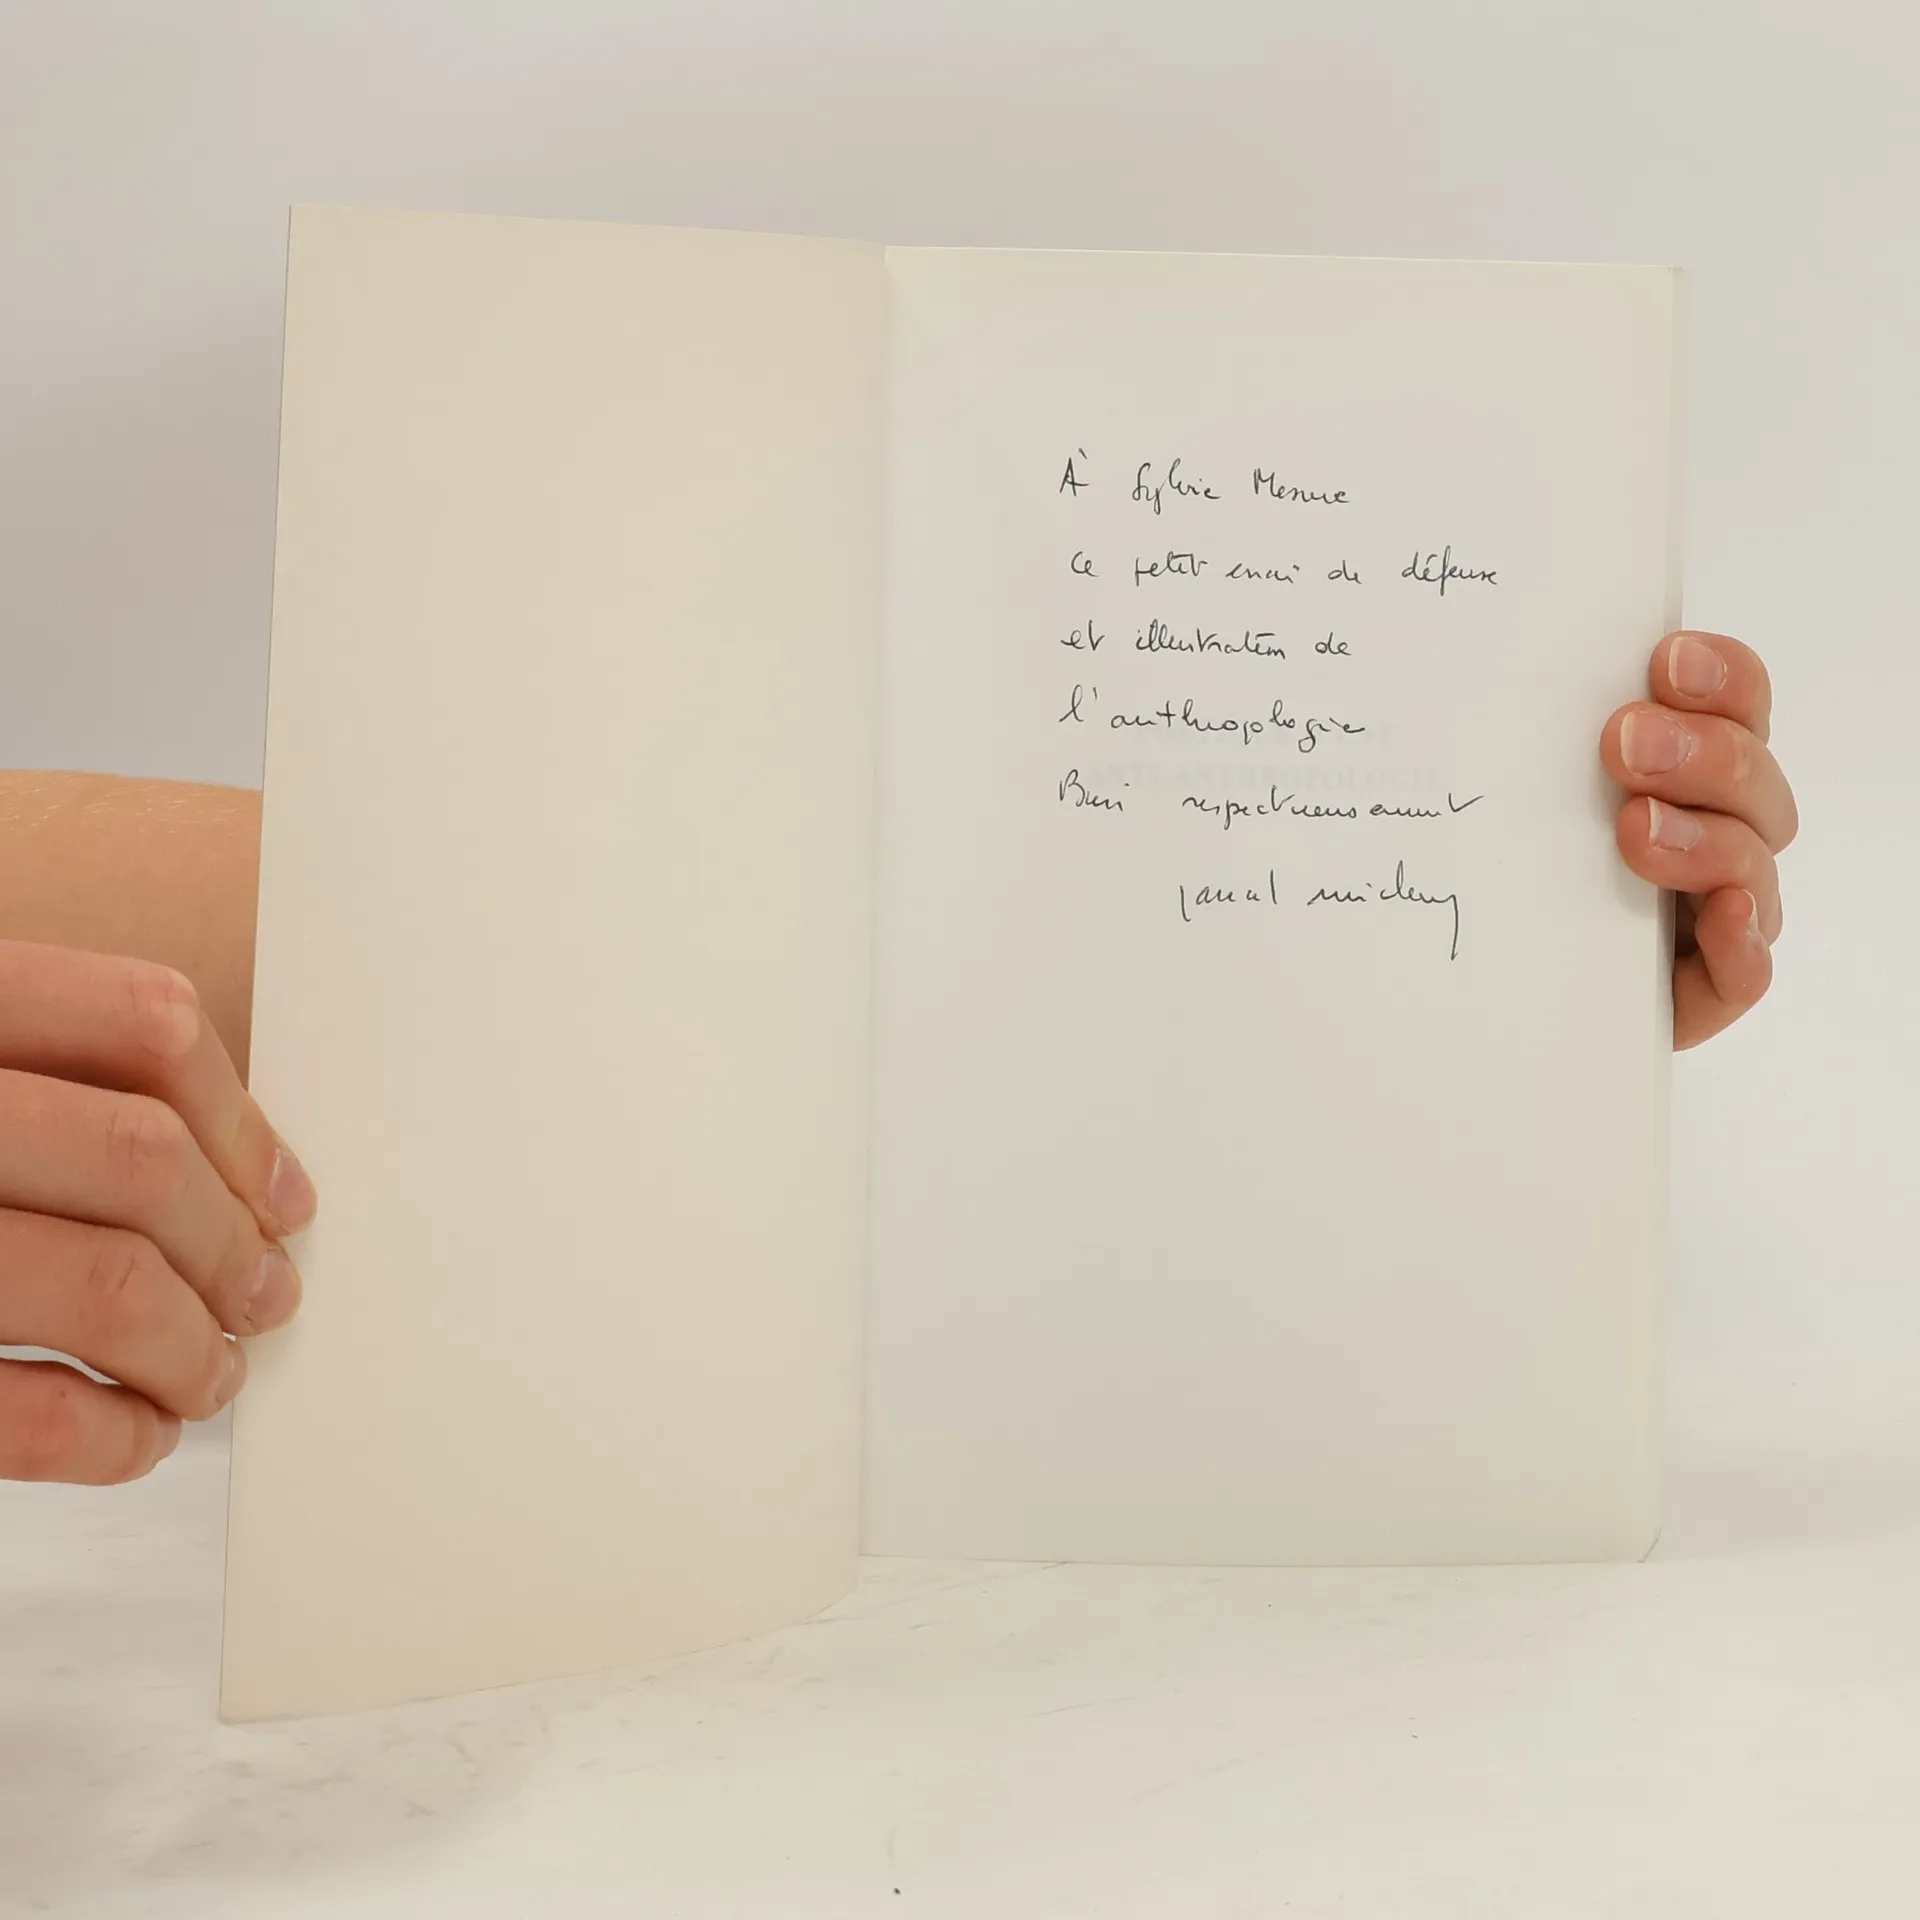 À Sylvie Mesure
Ce petit essai de défense
et illustration de
l'anthropologie
Bien respectueusement
pascal michon
ANTI-ANTHROPOLOGIE